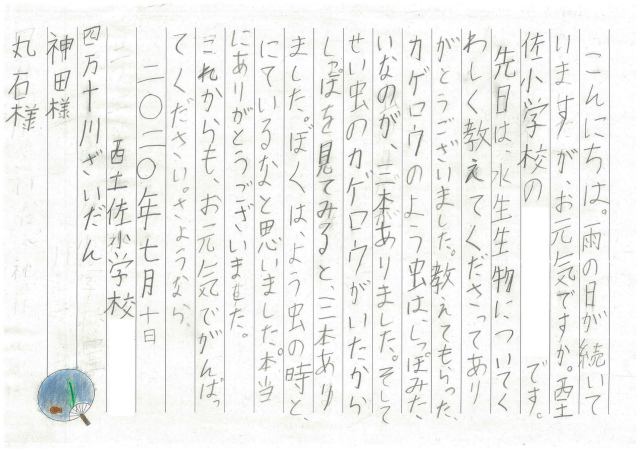 こんにちは。雨の日が続いて
いますが、お元気ですか。西土
佐小学校の です。
先日は、水生生物についてく
わしく教えてくださってあり
がとうございました。教えてもらった、
カゲロウのよう虫は、しっぽみた
いなのが、三本ありました。そして
せい虫のカゲロウがいたから
しっぽを見てみると、三本あり
ました。ぼくは、よう虫の時と、
にているなと思いました。本当
にありがとうございました。
これからも、お元気でがんばっ
てください。さようなら、
二〇二〇年七月十日
西土佐小学校
四万十川ざいだん
神田様
丸石様